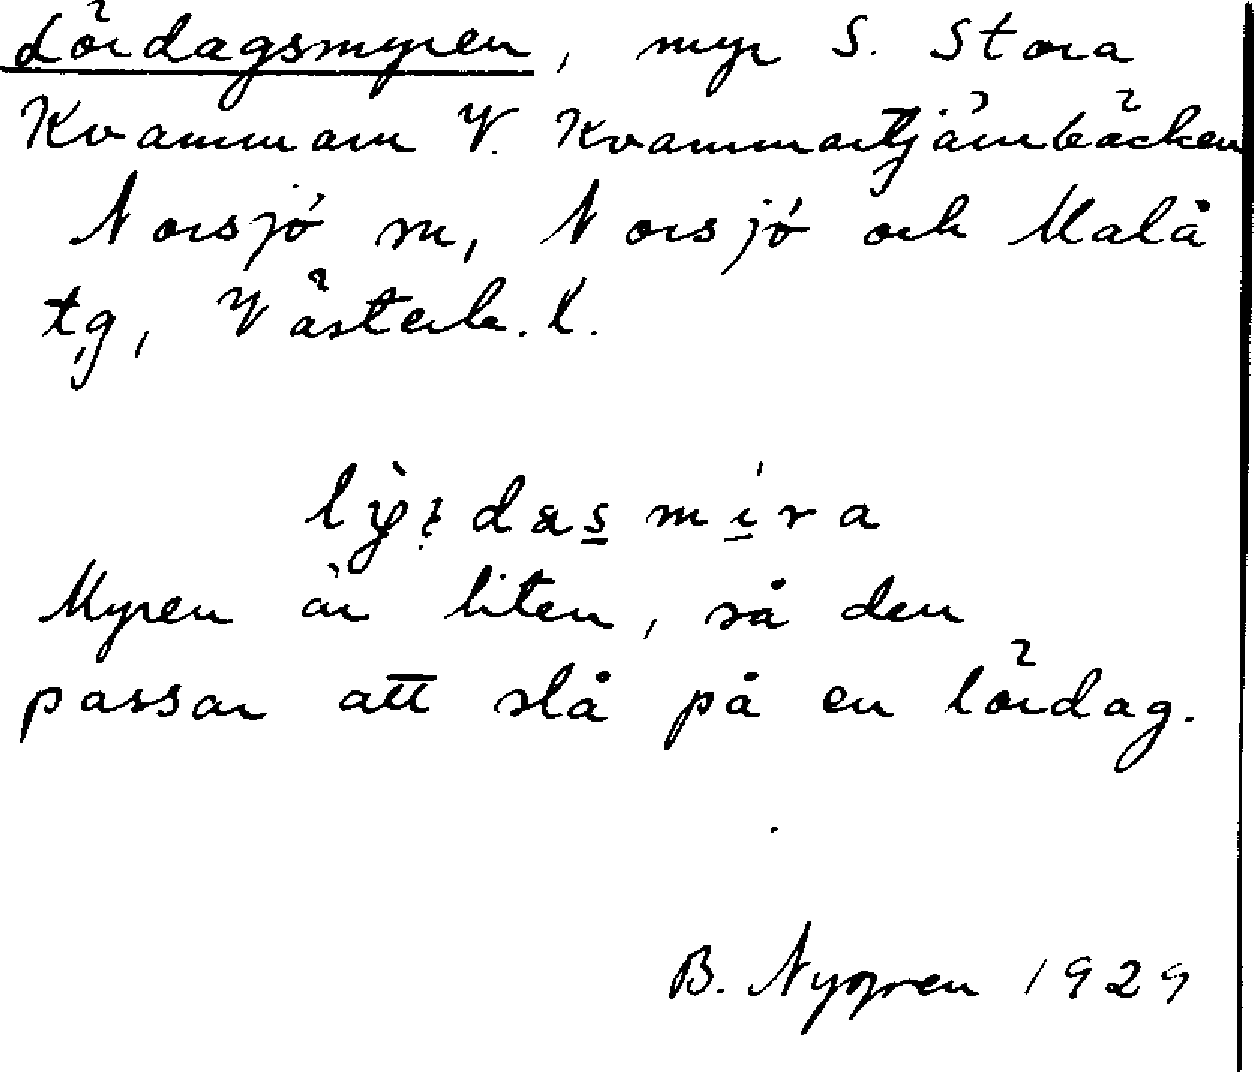 Lördagsmyren, myr S. Stora
Kvammarn V. Kvammartjärnbäcken
Norsjö sn, Norsjö och Malå
tg, Västerb. l.
Myren är liten, så den
passar att slå på en lördag.
B. Nygren 1929